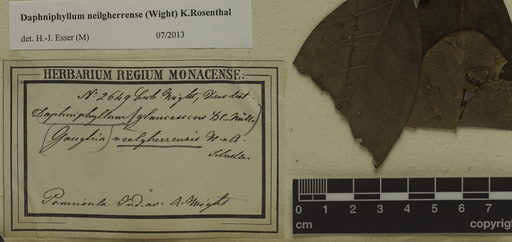 Daphniphyllum neilgherrense (Wight) K.Rosenthal
det. H.-J. Esser (M) 07/2013
HERBARIUM REGIUM MONACENSE.
No 2649 herb Wight,
Daphniphyllum glaucescens Bl. Müll.
neilgherrensis W. A.
Peninsula Ind. or. R. Wight
0 1 2 3 4 5 6 7
cm